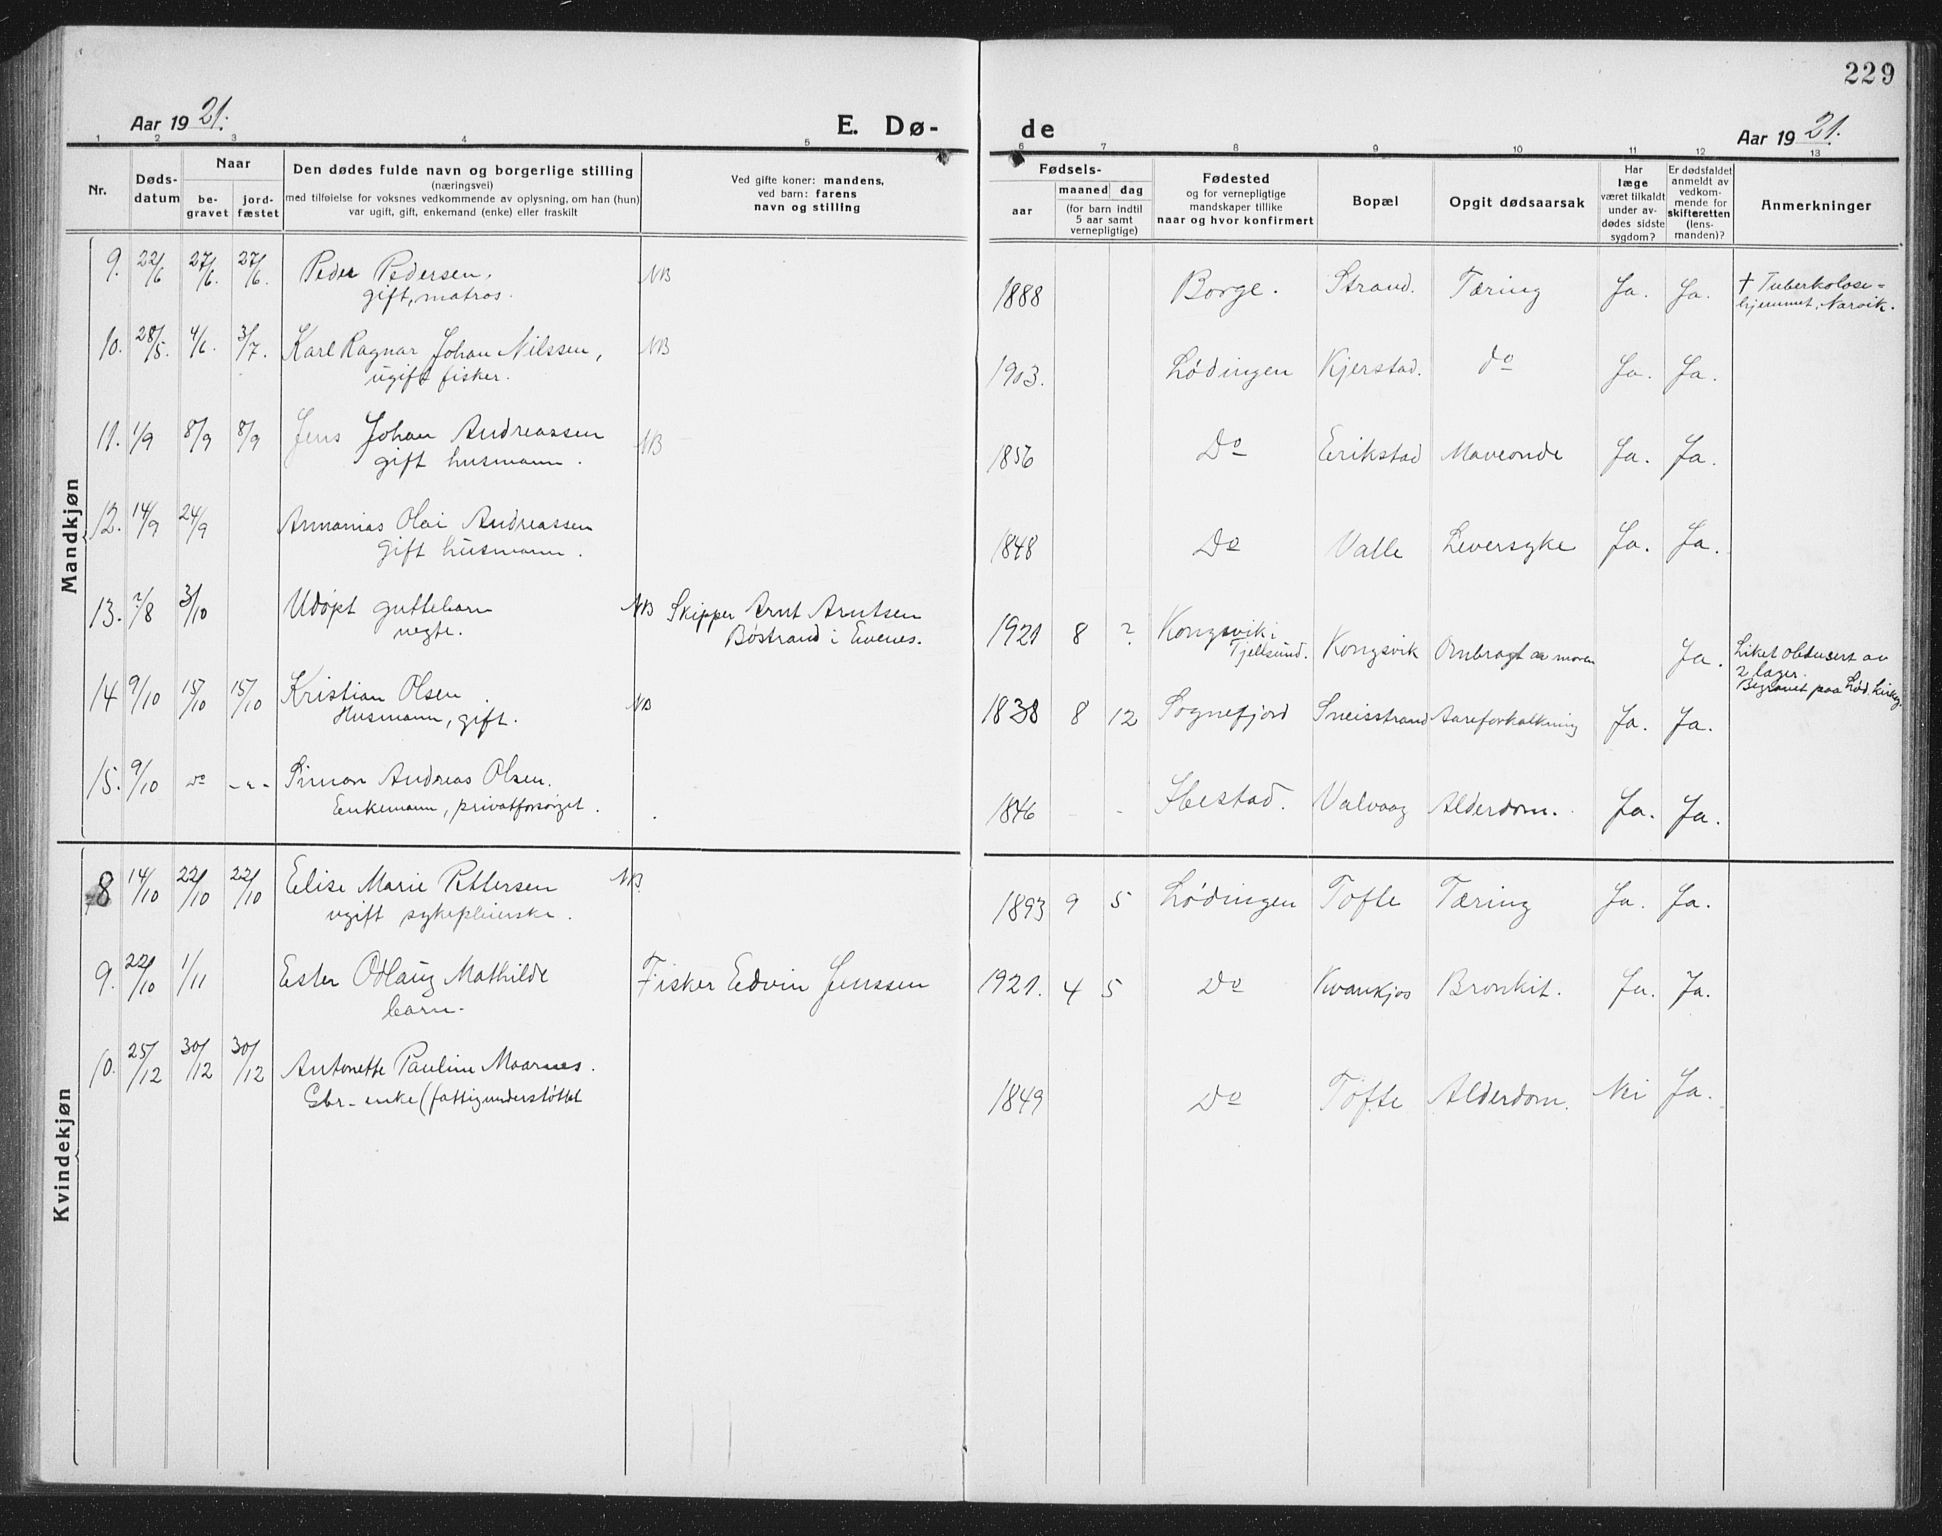 229
Aar 1921.
E. Dø-
de
Aar 1921.
1 2 3 4 5 6 7 8 9 10 11 12 13
Nr.
Døds-
datum
Naar
be-
gravet
jord-
fæstet
Den dødes fulde navn og borgerlige stilling
(næringsvei)
med tilføielse for voksnes vedkommende av oplysning, om han (hun)
var ugift, gift, enkemand (enke) eller fraskilt
Ved gifte koner: mandens,
ved barn: farens
navn og stilling
Fødsels-
aar
maaned dag
(for barn indtil
5 aar samt
vernepligtige)
Fødested
og for vernepligtige
mandskaper tillike
naar og hvor konfirmert
Bopæl
Opgit dødsaarsak
Har
læge
været tilkaldt
under av-
dødes sidste
sygdom?
Er dødsfaldet
anmeldt av
vedkom-
mende for
skifteretten
(lens-
manden)?
Anmerkninger
Mandkjøn
9. 22/6 27/6. 27/6. Peder Pedersen. NB 1888 Borge. Strand. Tæring Ja. Ja. † Tuberkolose-
gift, matros. hjemmet, Narvik.
10. 28/5. 4/6. 3/7. Karl Ragnar Johan Nilssen, NB 1903. Lødingen Kjerstad. do Ja. Ja.
ugift fisker.
11. 1/9 8/9 8/9 Jens Johan Andreassen NB 1856 Do Erikstad Maveonde Ja. Ja.
gift husmann.
12. 14/9 24/9 Annanias Olai Andreassen 1848 Do Valle Leversyke Ja. Ja.
gift husmann.
13. ?/8 3/10 Udøpt guttebarn NB Skipper Arnt Arntsen 1921 8 ? Kongsvik i Kongsvik Ombragt av moren Ja. Liket obdusert av
uegte. Bøstrand i Evenes. Tjellsund. 2 læger.
Begravet paa Lød. kirkeg.
14 9/10 15/10 15/10 Kristian Olsen NB 1838 8 12 Sognefjord Sneisstrand Aareforkalkning Ja. Ja.
Husmann, gift.
15. 9/10 do -"- Simon Andreas Olsen. 1846 - - Ibestad. Valvaag Alderdom. Ja. Ja.
Enkemann, privatforsørget.
Kvindekjøn
8 14/10 22/10 22/10 Elise Marie Pettersen NB. 1893 9 5 Lødingen Tofte Tæring Ja. Ja.
ugift sykepleierske.
9. 22/10 1/11 Ester Odlaug Mathilde Fisker Edvin Jenssen 1921. 4 5 Do Kvankjos Bronkit. Ja. Ja.
barn.
10. 25/12 30/12 30/12 Antonette Pauline Maarnes. 1849 Do Tofte Alderdom. Nei Ja.
Gbr-enke (fattigunderstøttet